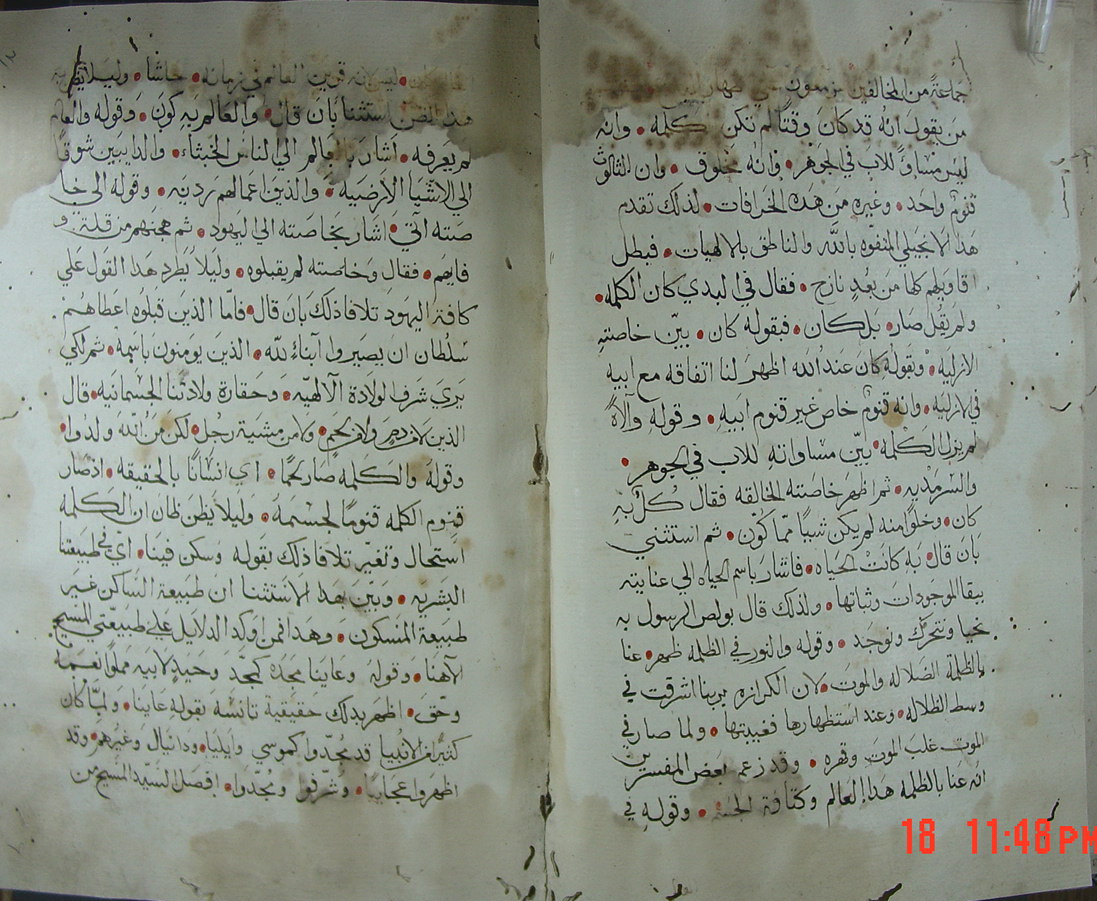 جماعةً من المخالفين يزعمون
من يقول انه قد كان وقتًا لم تكن كلمه • وانه
ليس مساوٍ للاب في الجوهر • وانه مخلوق • وان الثالوث
قنوم واحد • وغيره من هذه الخرافات • لذلك تقدم
هذا الانجيلي المتفوه بالله والناطق بالالهيات • فبطل
اقاويلهم كلها من بعدٍ نازح • فقال في البدي كان الكلمه •
ولم يقل صار • بل كان • فبقوله كان • بيّن خاصته
الازليه • وبقوله كان عند الله اظهر لنا اتفاقه مع ابيه
في الازليه • وانه قنوم خاص غير قنوم ابيه • وقوله والاهً
لم يزل الكلمه • بيّن مساواته للاب في الجوهر •
والسرمديه • ثم اظهر خاصته الخالقه فقال كلٌ به
كان • وخلوًا منه لم يكن شيًا ممّا كوّن • ثم استثني
بان قال به كانت الحياه • فاشار باسم الحياه الي عنايته
ببقا الموجودات وثباتها • ولذلك قال بولص الرسول به
نحيا ونتحرّك ونوجد • وقوله والنور في الظلمه ظهر • عنا
بالظلمة الضلاله والموت • لان الكرازه بربنا اشرقت في
وسط الظلاله • وعند استظهارها فغيبتها • ولما صار في
الموت غلب الموت وقهره • وقد زعم بعض المفسرين
انه عنا بالظلمه هذا العالم وكثافة • وقوله في
ليس انه قريت العالم في زمانه • حاشا • وليلا
هذا استثنا بان قال • والعالم به كون • وقوله والعالم
لم يعرفه • اشار بالعالم الي الناس الخبثاء • والدايبين شوقًا
الي الاشيا الارضيه • والذين اعمالهم رديه • وقوله الي خا
صته اتي • اشار بخاصته الي اليهود • ثم هجنهم من قلة و
فايهم • فقال وخاصته لم يقبلوه • وليلا يطرد هذا القول علي
كافة اليهود تلافا ذلك بان قال • فامّا الذين قبلوه اعطاهم •
سلطان ان يصيروا ابناء لله • الذين يومنون باسمه • ثم لكي
يري شرف الولادة الالهيّه • وحقارة ولادتنا الجسمانيه • قال
الذين لا من دمٍ ولا من لحمٍ • ولا من مشية رجل • لكن من الله ولدوا •
وقوله والكلمه صار لحمًا • اي انسانًا بالحقيقه • اذ صار
قنوم الكلمه قنومًا لجسمه • وليلا يظن ظان ان الكلمه
استحال وتغيّر تلافا ذلك بقوله وسكن فينا • اي في طبيعتنا
البشريه • وبيّن بهذا الاستثنا ان طبيعة الساكن غير
طبيعة المسكون • وهذا فمن اوكد الدلايل علي طبيعتي المسيح
الاهنا • وقوله وعاينا مجده كمجد وحيدٍ لابيه مملوا نعمة
وحق • اظهر بذلك حقيقية تانسه بقوله عاينا • ولما كان
كثير من الانبيا قد مُجّدوا كموسي وايليا • ودانيال وغيرهم • وقد
اظهروا عجايبًا • وشُرّفوا ومُجّدوا • افصل السيّد المسيح من